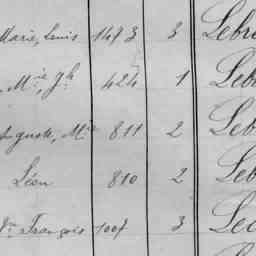 Marie, Louis 1473 3 Lebr
Mie, Gh 424 1 Leb
Auguste, Mie 811 2 Leb
Léon 810 2 Leb
Vm François 1007 3 Lec